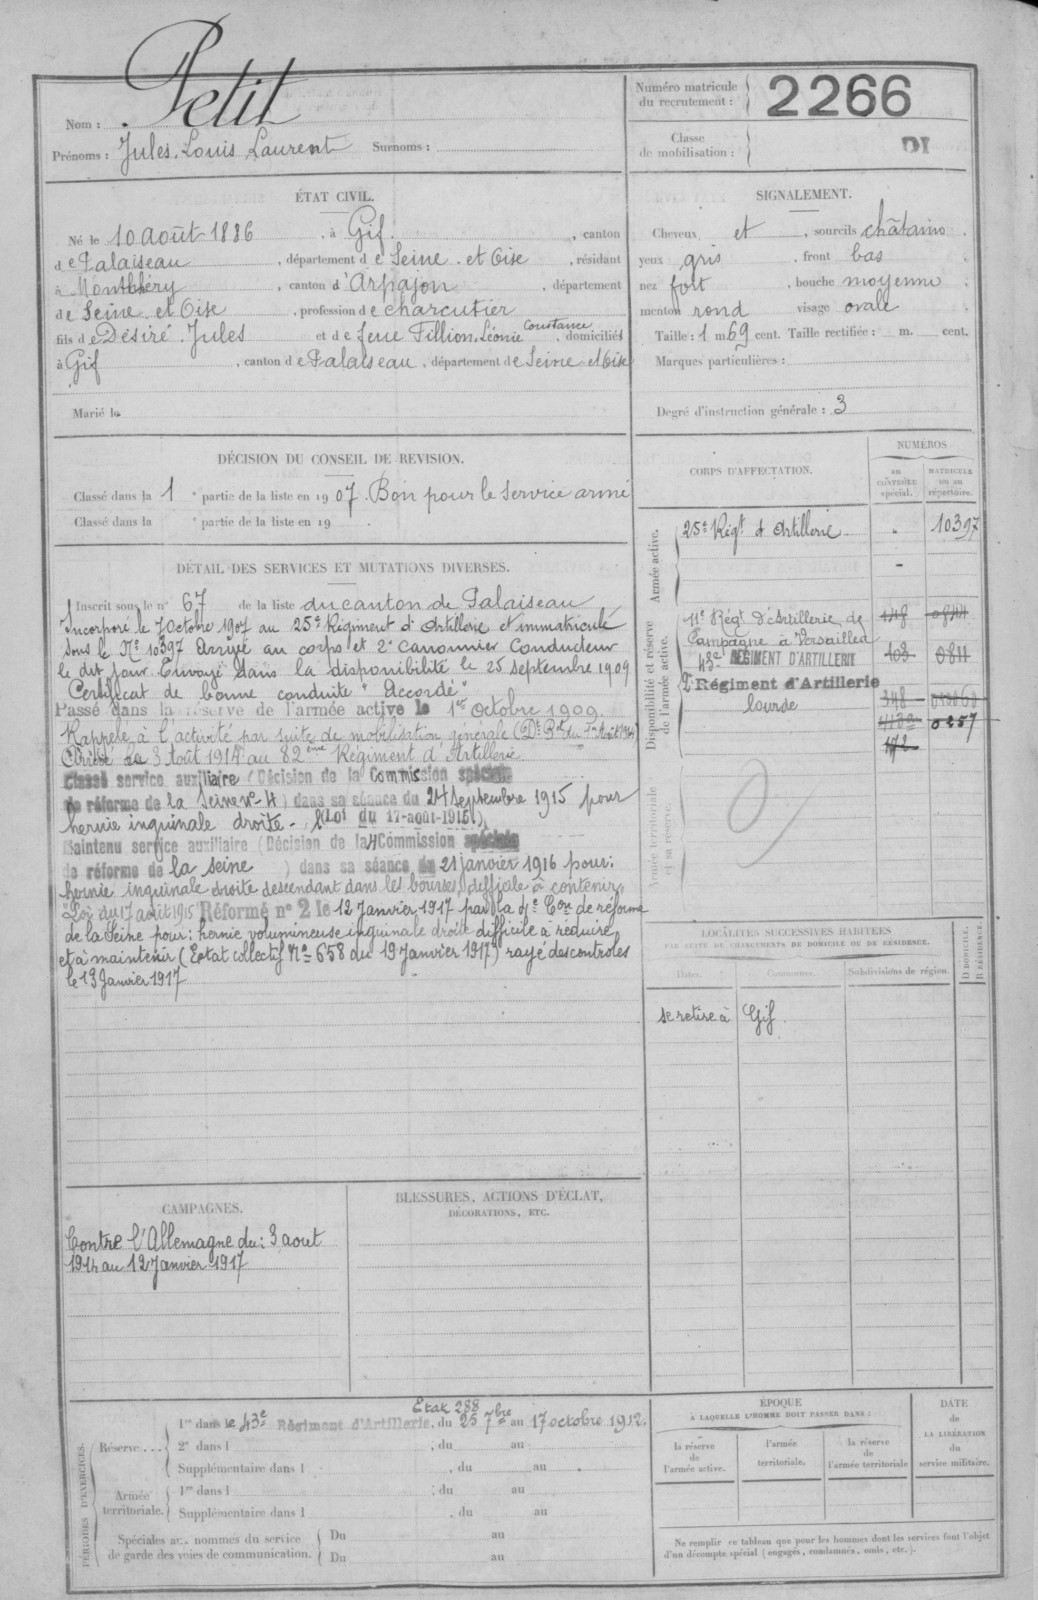 Nom : Petit
Prénoms : Jules, Louis, Laurent Surnoms :
Numéro matricule
du recrutement : 2266
Classe
de mobilisation : DI
ÉTAT CIVIL.
Né le 10 Août 1886, à Gif, canton
de Palaiseau, département de Seine et Oise, résidant
à Montlhéry, canton d'Arpajon, département
de Seine et Oise, profession de charcutier
fils de Désiré Jules et de feue Fillion, Léonie Constance, domiciliés
à Gif, canton de Palaiseau, département de Seine et Oise
Marié le
SIGNALEMENT.
Cheveux et, sourcils châtains
yeux gris, front bas
nez fort, bouche moyenne
menton rond visage ovale
Taille : 1 m 69 cent. Taille rectifiée : m. cent.
Marques particulières :
Degré d'instruction générale : 3
DÉCISION DU CONSEIL DE REVISION.
Classé dans la 1e partie de la liste en 1907. Bon pour le service armé
Classé dans la e partie de la liste en 19 .
DÉTAIL DES SERVICES ET MUTATIONS DIVERSES.
Inscrit sous le n° 67 de la liste du canton de Palaiseau
Incorporé le 7 Octobre 1907 au 25e Régiment d'Artillerie et immatriculé
sous le No 10397 Arrivé au corps et 2e canonnier conducteur
le dit jour. Envoyé dans la disponibilité le 25 septembre 1909
Certificat de bonne conduite "Accordé"
Passé dans la réserve de l'armée active le 1er Octobre 1909.
Rappelé à l'activité par suite de mobilisation générale
Arrivé le 3 Août 1914 au 82ème Régiment d'Artillerie
Classé service auxiliaire (Décision de la Commission spéciale
de réforme de la Seine n° 4) dans sa séance du 24 septembre 1915 pour
hernie inguinale droite - (Loi du 17-août-1915)
Maintenu service auxiliaire (Décision de la 4 Commission spéciale
de réforme de la Seine) dans sa séance du 21 janvier 1916 pour :
hernie inguinale droite descendant dans les bourses, difficile à contenir,
Loi du 17 août 1915 Réformé n° 2 le 12 Janvier 1917 par la 4e Con de réforme
de la Seine pour : hernie volumineuse inguinale droite difficile à réduire
et à maintenir (Etat collectif No 658 du 19 Janvier 1917) rayé des controles
le 13 Janvier 1917
CORPS D'AFFECTATION.
NUMÉROS
au CONTRÔLE spécial.
MATRICULE ou au répertoire.
Armée active.
25e Régt d'Artillerie 10397
Disponibilité et réserve de l'armée active.
11e Régt d'Artillerie de 148 0844
Campagne à Versailles
43e RÉGIMENT D'ARTILLERIE 103 0811
2e Régiment d'Artillerie 348
lourde 0257
Armée territoriale et sa réserve.
LOCALITÉS SUCCESSIVES HABITÉES
PAR SUITE DE CHANGEMENTS DE DOMICILE OU DE RÉSIDENCE.
Dates. Communes. Subdivisions de région. D DOMICILE. R RÉSIDENCE.
se retire à Gif.
CAMPAGNES.
Contre l'Allemagne du : 3 aout
1914 au 12 Janvier 1917
BLESSURES, ACTIONS D'ÉCLAT,
DÉCORATIONS, ETC.
PÉRIODES D'EXERCICES.
Etat 288
Réserve ... 1re dans le 43e Régiment d'Artillerie, du 25 7bre au 17 octobre 1912.
2e dans l ; du au
Supplémentaire dans l , du au .
Armée territoriale. 1re dans l ; du au
Supplémentaire dans l . du au
Spéciales aux hommes du service
de garde des voies de communication. Du au
Du au
ÉPOQUE
À LAQUELLE L'HOMME DOIT PASSER DANS :
la réserve de l'armée active.
l'armée territoriale.
la réserve de l'armée territoriale
DATE
de
LA LIBÉRATION
du
service militaire.
Ne remplir ce tableau que pour les hommes dont les services font l'objet
d'un décompte spécial (engagés, condamnés, omis, etc.).